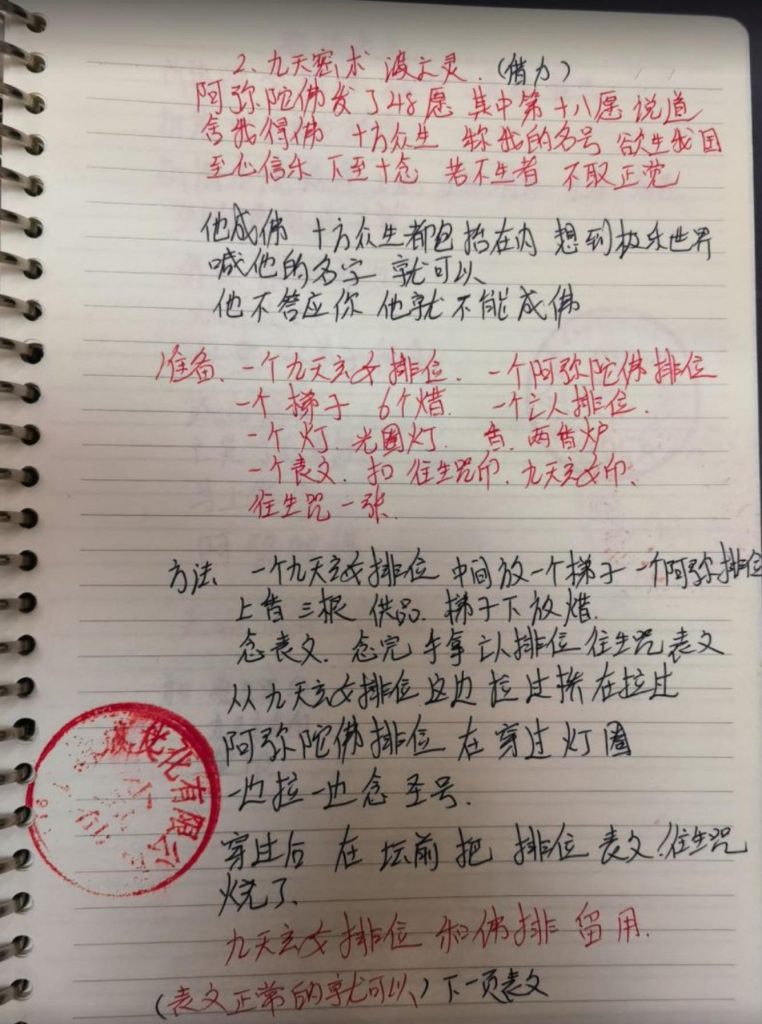 2、九天密术 渡亡灵.（借力）
阿弥陀佛发了48愿 其中第十八愿 说道
舍我得佛 十方众生 称我的名号 欲生我国
至心信乐 下至十念 若不生者 不取正觉
他成佛 十方众生都包括在内 想到极乐世界
喊他的名字 就可以
他不答应你 他就不能成佛
准备、一个九天玄女排位、一个阿弥陀佛排位
一个梯子 6个烛. 一个亡人排位.
一个灯. 光圈灯. 香. 两香炉
一个表文. 扣 往生咒印. 九天玄女印.
往生咒一张.
方法 一个九天玄女排位 中间放一个梯子 一个阿弥排位
上香三根 供品. 梯子下放烛.
念表文. 念完手拿亡人排位 往生咒 表文
从九天玄女排位这边 拉过 在拉过
阿弥陀佛排位 在穿过灯圈
一边拉一边念圣号.
穿过后 在坛前 把 排位 表文.往生咒
烧了.
九天玄女排位 和佛排 留用.
（表文正常的就可以）下一页表文
化有限公